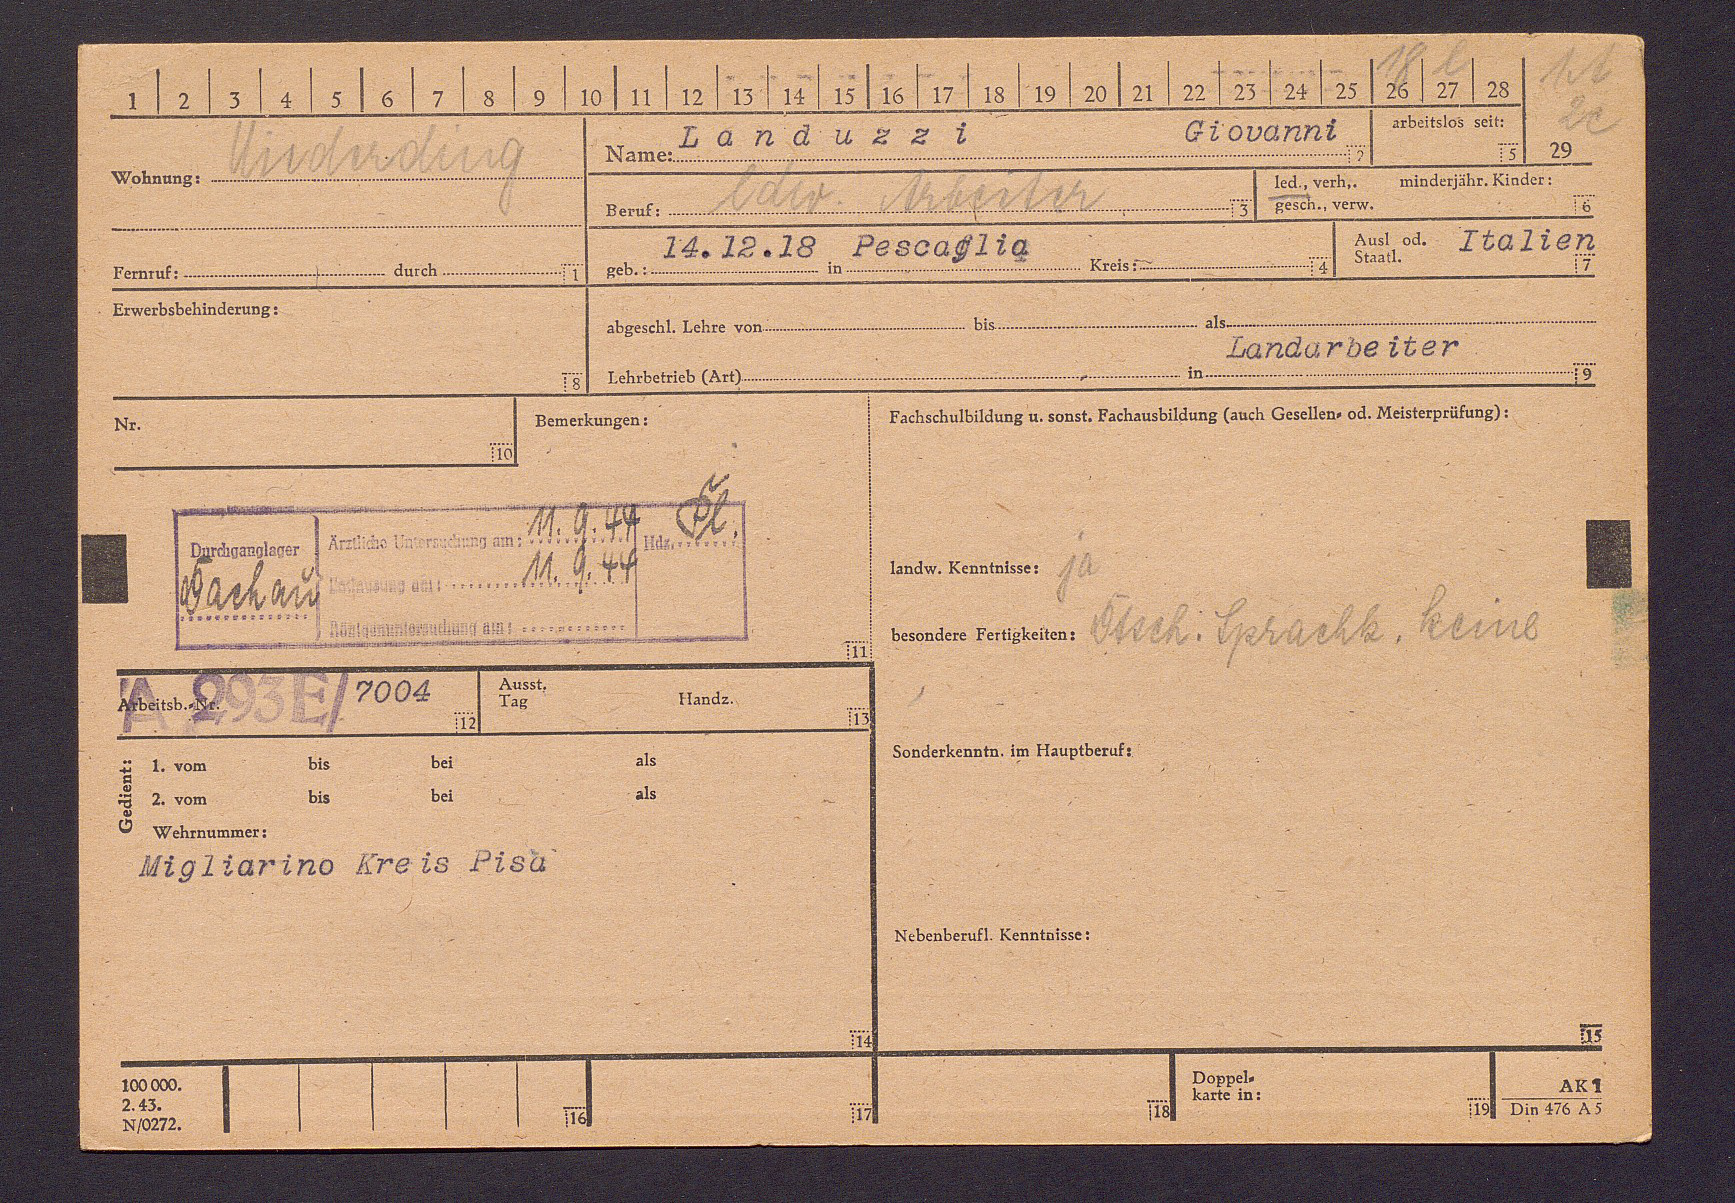 1 2 3 4 5 6 7 8 9 10 11 12 13 14 15 16 17 18 19 20 21 22 23 24 25 26 27 28
18 l
1A
2c
29
Wohnung: Niederding
Name: Landuzzi Giovanni 2
arbeitslos seit: 5
Beruf: ldw. Arbeiter 3
led., verh,. minderjähr. Kinder:
gesch., verw. 6
Fernruf: durch 1
geb.: 14.12.18 in Pescaglia Kreis: 4
Ausl od. Staatl. Italien 7
Erwerbsbehinderung: 8
abgeschl. Lehre von bis als
Landarbeiter
Lehrbetrieb (Art) in 9
Nr. 10
Bemerkungen:
Fachschulbildung u. sonst. Fachausbildung (auch Gesellen- od. Meisterprüfung):
Durchganglager
Dachau
Ärztliche Untersuchung am: 11. 9. 44
Entlausung am: 11. 9. 44
Röntgenuntersuchung am:
Hdz.
11
landw. Kenntnisse: ja
besondere Fertigkeiten: Dtsch. Sprachk. keine
Arbeitsb.-Nr. A 293E/ 7004 12
Ausst. Tag Handz. 13
Sonderkenntn. im Hauptberuf:
Gedient:
1. vom bis bei als
2. vom bis bei als
Wehrnummer:
Migliarino Kreis Pisa
Nebenberufl. Kenntnisse:
14
15
100 000.
2. 43.
N/0272.
16
17
18
Doppel-
karte in: 19
AK 1
Din 476 A 5